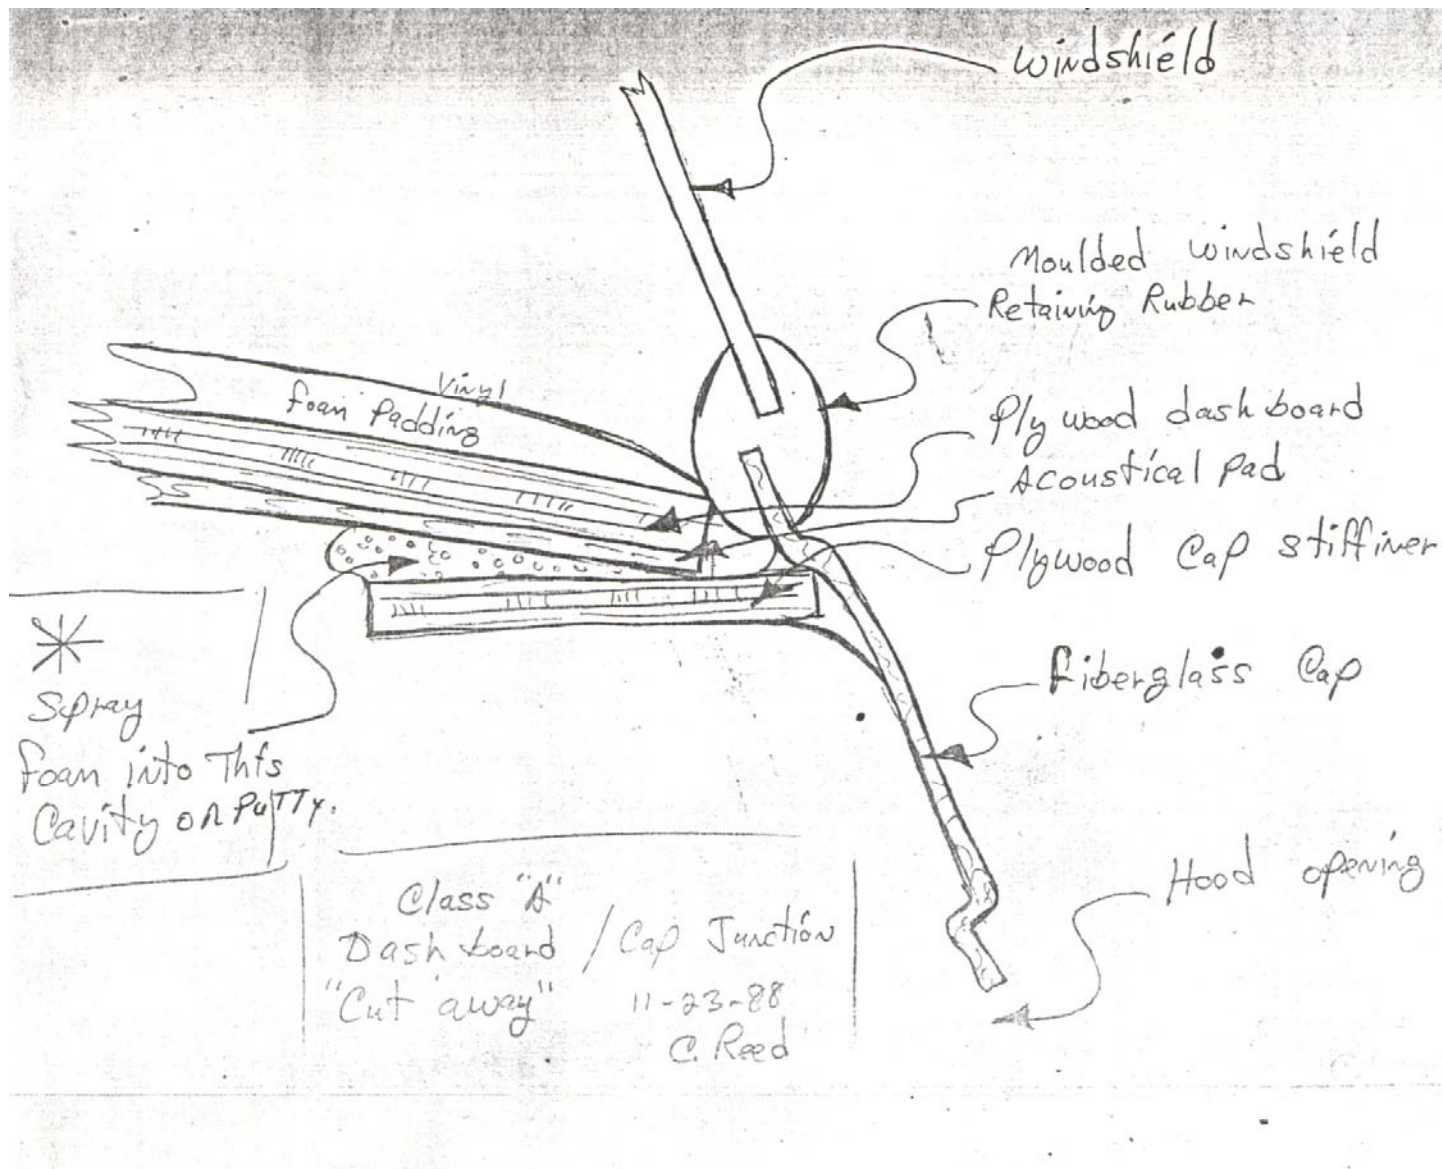 Windshield
Moulded windshield
Retaining Rubber
Vinyl
foam Padding
Plywood dashboard
Acoustical pad
Plywood Cap stiffiner
Fiberglass Cap
*
Spray
foam into This
Cavity or Putty.
Hood opening
Class "A"
Dashboard / Cap Junction
"Cut away" 11-23-88
C. Reed